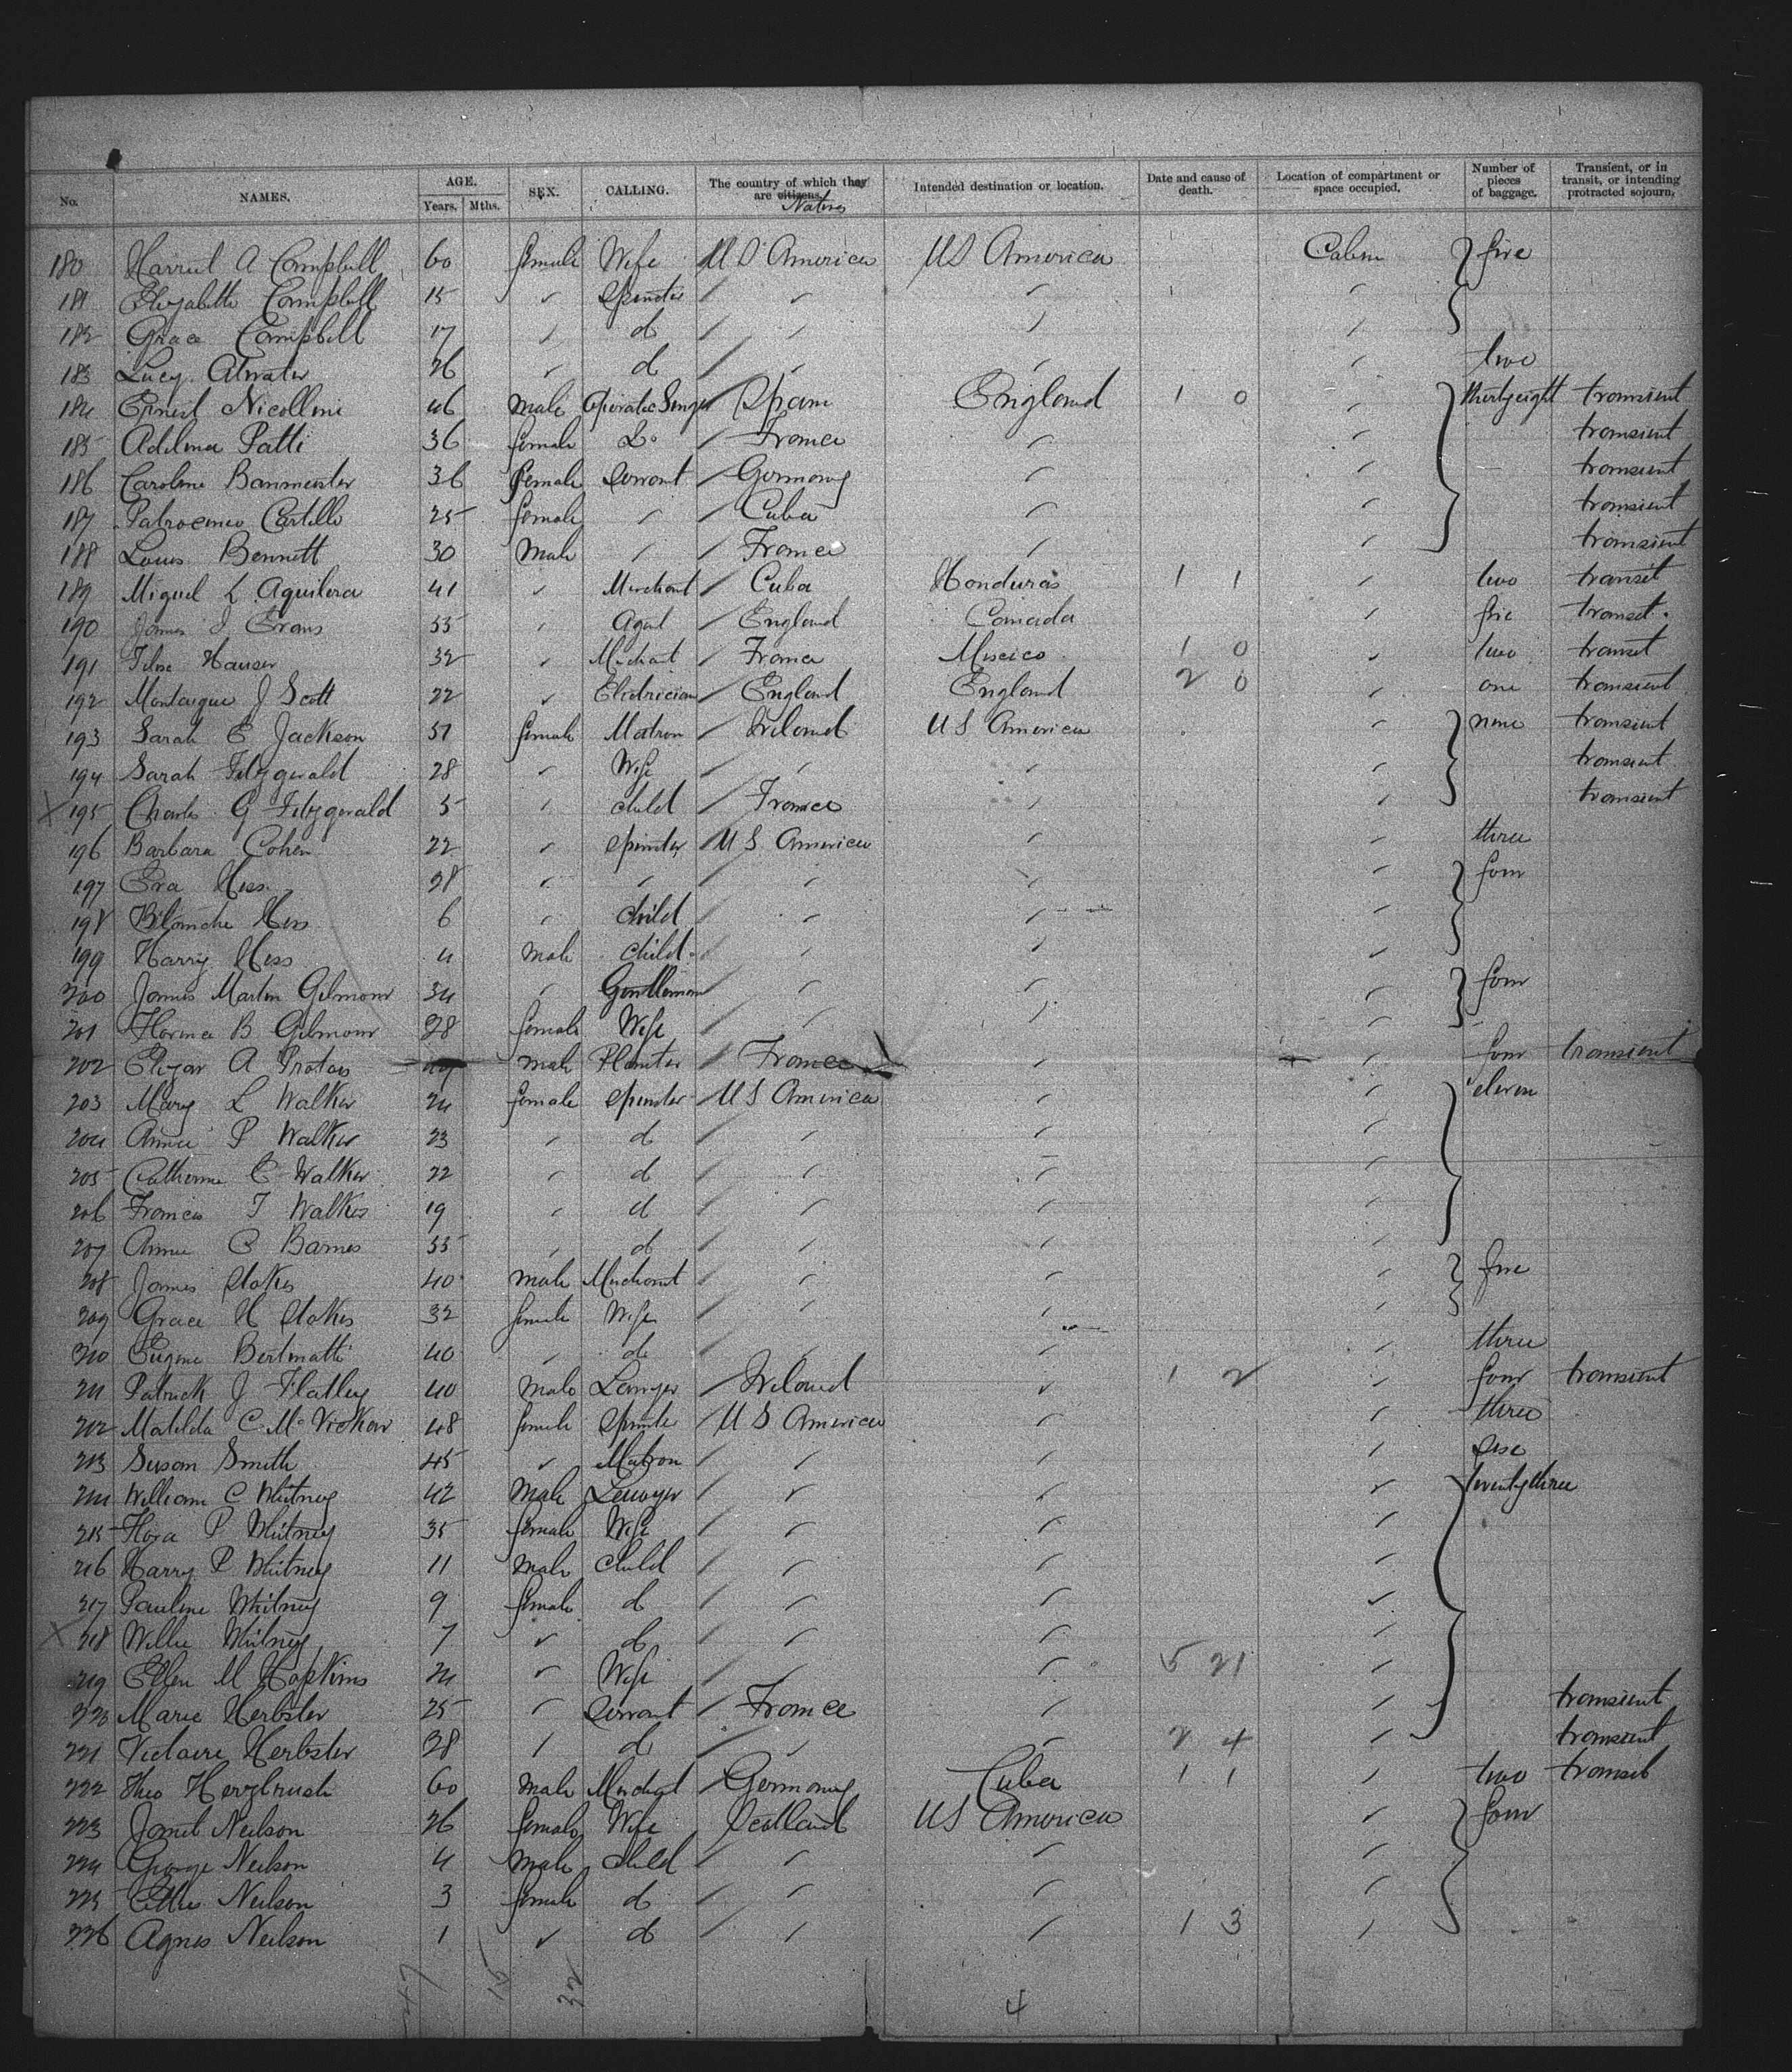 No. NAMES. AGE. Years. Mths. SEX. CALLING. The country of which they are citizens. Natives Intended destination or location. Date and cause of death. Location of compartment or space occupied. Number of pieces of baggage. Transient, or in transit, or intending protracted sojourn.
180 Harriet A Campbell 60 female Wife U S America U S America Cabin five
181 Elizabeth Campbell 15 " Spinster " " "
182 Grace Campbell 17 " do " " "
183 Lucy Atwater 26 " do " " " two
184 Ernest Nicollini 46 male Operatic Singer Spain England 1 0 " thirtyeight transient
185 Adelina Patti 36 female Do France " " transient
186 Caroline Banmeister 36 female Servant Germany " " transient
187 Patrocinio Castillo 25 female " Cuba " " transient
188 Louis Bennett 30 Male " France " " transient
189 Miguel L Aguilera 41 " Merchant Cuba Honduras 1 1 " two transit
190 James J Evans 55 " Agent England Canada " five transit
191 Hauser 32 " Merchant France Mexico 1 0 " two transit
192 Montague J Scott 22 " Electrician England England 2 0 " one transient
193 Sarah E Jackson 51 female Matron Ireland U S America " nine transient
194 Sarah Fitzgerald 28 " Wife " " " transient
195 Charles G Fitzgerald 5 " child France " " transient
196 Barbara Cohen 22 " Spinster U S America " " three
197 Eva Hess 28 " " " " " four
198 Blanche Hess 6 " child " " "
199 Harry Hess 4 male child " " "
200 James Martin Gilmour 34 " Gentleman " " " four
201 B Gilmour 28 female Wife " " "
202 A male Planter France " " four transient
203 Mary L Walker 24 female Spinster U S America " " eleven
204 Annie P Walker 23 " do " " "
205 Catherine E Walker 22 " do " " "
206 Frances T Walker 19 " do " " "
207 Annie C Barnes 55 " do " " "
208 James Stokes 40 male Merchant " " " five
209 Grace H Stokes 32 female Wife " " "
210 Eugene 40 " do " " " three
211 Patrick J Flatley 40 Male Lawyer Ireland " 1 2 " four transient
212 Matilda C McVickar 48 female Spinster U S America " " three
213 Susan Smith 45 " Matron " " "
214 William C Whitney 42 Male Lawyer " " " twentythree
215 Flora P Whitney 35 female Wife " " "
216 Harry P Whitney 11 Male Child " " "
217 Pauline Whitney 9 female do " " "
218 Willie Whitney 7 " do " " "
219 Ellen M Hopkins 24 " Wife " " 5 21 "
220 Marie Herbster 25 " Servant France " " transient
221 Victoire Herbster 28 " do " " 2 4 " transient
222 Theo 60 male Merchant Germany Cuba 1 1 " two transit
223 Janet Neilson 26 female Wife Scotland U S America " four
224 George Neilson 4 male child " " "
225 Neilson 3 female do " " "
226 Agnes Neilson 1 " do " " 1 3 "
47 15 32 4